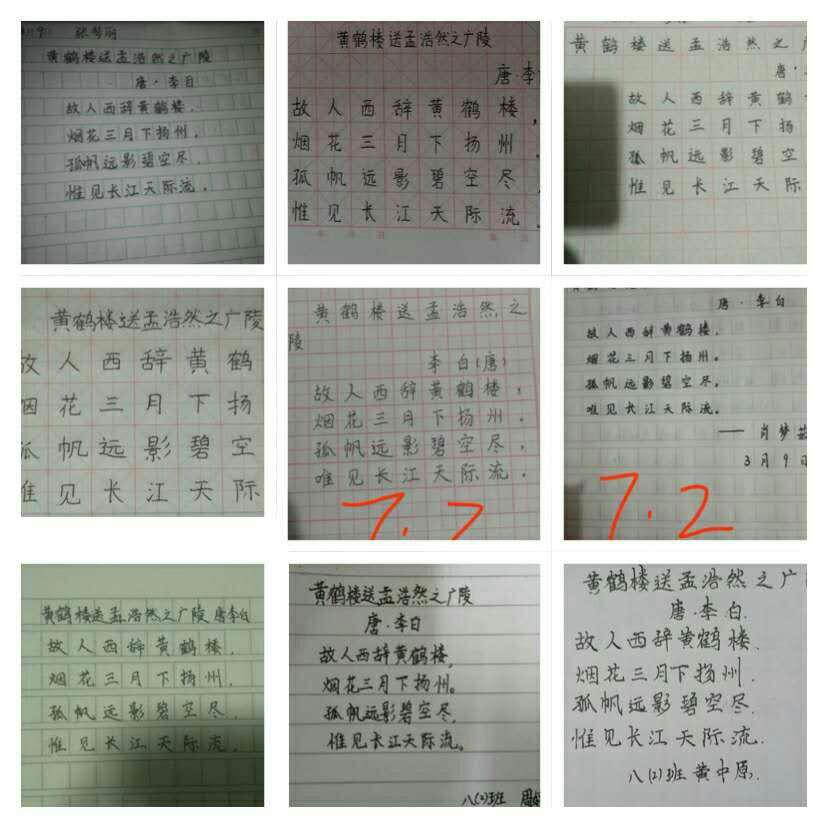 张梦丽
黄鹤楼送孟浩然之广陵
唐·李白
故人西辞黄鹤楼,
烟花三月下扬州,
孤帆远影碧空尽.
惟见长江天际流.
黄鹤楼送孟浩然之广陵
唐·李
故人西辞黄鹤楼,
烟花三月下扬州.
孤帆远影碧空尽,
惟见长江天际流.
年 月 日
黄鹤楼送孟浩然之广
唐·
故人西辞黄鹤
烟花三月下扬
孤帆远影碧空
惟见长江天际
黄鹤楼送孟浩然之广陵
故人西辞黄鹤
烟花三月下扬
孤帆远影碧空
惟见长江天际
黄鹤楼送孟浩然之
陵
李白(唐)
故人西辞黄鹤楼,
烟花三月下扬州.
孤帆远影碧空尽,
唯见长江天际流.
7.2
唐·李白
故人西辞黄鹤楼,
烟花三月下扬州。
孤帆远影碧空尽,
唯见长江天际流。
——肖梦
3月9日
7.2
黄鹤楼送孟浩然之广陵 唐李白
故人西辞黄鹤楼,
烟花三月下扬州.
孤帆远影碧空尽.
惟见长江天际流.
黄鹤楼送孟浩然之广陵
唐·李白
故人西辞黄鹤楼,
烟花三月下扬州。
孤帆远影碧空尽,
惟见长江天际流。
八(2)班 周
黄鹤楼送孟浩然之广
唐·李白.
故人西辞黄鹤楼.
烟花三月下扬州.
孤帆远影碧空尽.
惟见长江天际流.
八(2)班 黄中原.